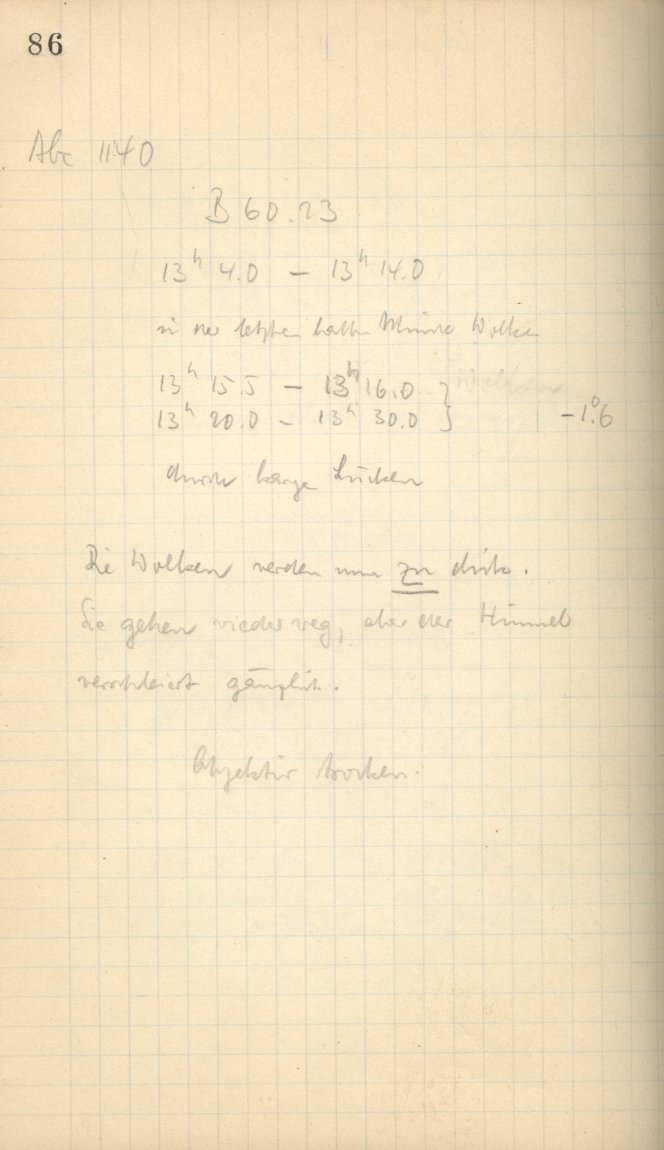 86
Abc 1140
B 60.23
13ʰ 4.0 — 13ʰ 14.0
in der letzten halben Minute Wolken
13ʰ 15.5 — 13ʰ 16.0 } Wolken
13ʰ 20.0 — 13ʰ 30.0 } -1°.6
durch lange Lücken
Die Wolken werden nun zu dick.
Sie gehen wieder weg, aber der Himmel
verschleiert gänzlich.
Objektiv trocken.